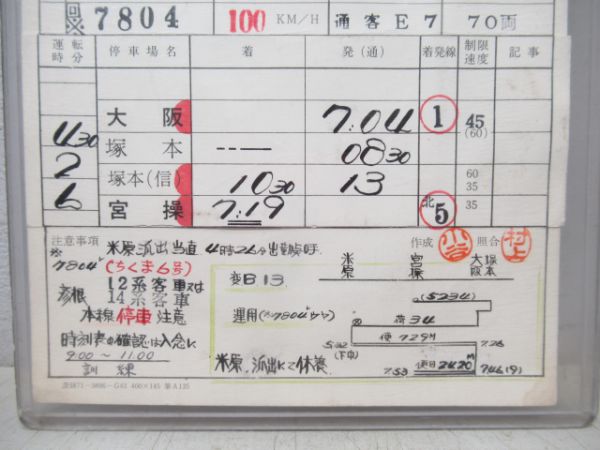 回※ 7804 100 KM/H 通客E7 70両
運転時分 停車場名 着 発(通) 着発線 制限速度 記事
大阪 7:04 1 45 (60)
4 30 塚本 08 30
2 塚本(信) 10 30 13 60 35
6 宮操 7:19 北5 35
注意事項 米原派出当直 4時26分出勤点呼 作成 小谷 照合 村上
※7804レ(ちくま6号)
彦根 12系客車又は
14系客車
本線停車注意
時刻表の確認は入念に
9:00〜11:00
訓練
米原 宮操 大阪
変日13
(5234)
運用 荷34
便729M
5:32 7:26
米原派出にて休養 7:53 2420M 746(9)